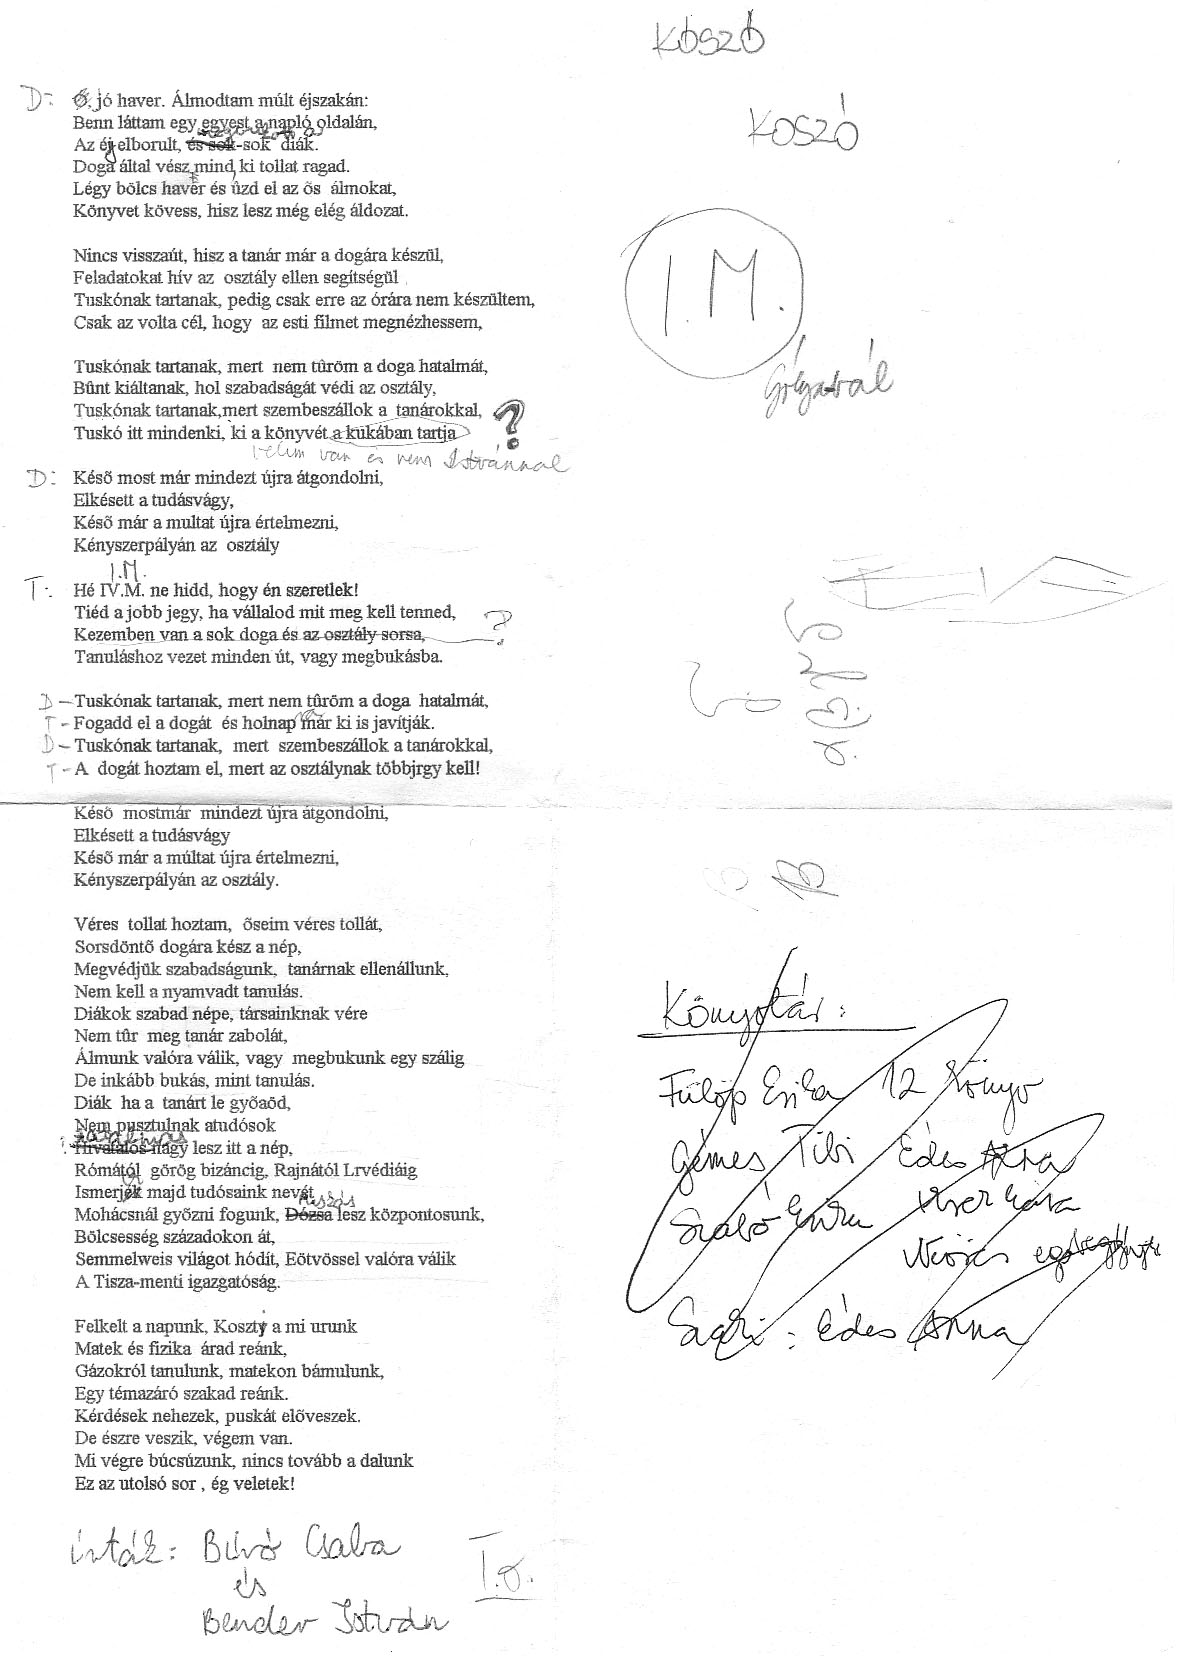 D: Ó. jó haver. Álmodtam múlt éjszakán:
Benn láttam egy egyest a napló oldalán,
Az éj elborult, és sok-sok diák.
Doga által vész, mind ki tollat ragad.
Légy bölcs haver és ûzd el az õs álmokat,
Könyvet kövess, hisz lesz még elég áldozat.
Nincs visszaút, hisz a tanár már a dogára készül,
Feladatokat hív az osztály ellen segítségül
Tuskónak tartanak, pedig csak erre az órára nem készültem,
Csak az volta cél, hogy az esti filmet megnézhessem,
Tuskónak tartanak, mert nem tûröm a doga hatalmát,
Bûnt kiáltanak, hol szabadságát védi az osztály,
Tuskónak tartanak,mert szembeszállok a tanárokkal,
Tuskó itt mindenki, ki a könyvét a kukában tartja ?
velem van és nem Istvánnal
D: Késõ most már mindezt újra átgondolni,
Elkésett a tudásvágy,
Késõ már a multat újra értelmezni,
Kényszerpályán az osztály
I.M.
T: Hé IV.M. ne hidd, hogy én szeretlek!
Tiéd a jobb jegy, ha vállalod mit meg kell tenned,
Kezemben van a sok doga és az osztály sorsa, ?
Tanuláshoz vezet minden út, vagy megbukásba.
D – Tuskónak tartanak, mert nem tûröm a doga hatalmát,
T – Fogadd el a dogát és holnap már ki is javítják.
D – Tuskónak tartanak, mert szembeszállok a tanárokkal,
T – A dogát hoztam el, mert az osztálynak többjrgy kell!
Késõ mostmár mindezt újra átgondolni,
Elkésett a tudásvágy
Késõ már a múltat újra értelmezni,
Kényszerpályán az osztály.
Véres tollat hoztam, õseim véres tollát,
Sorsdöntõ dogára kész a nép,
Megvédjük szabadságunk, tanárnak ellenállunk,
Nem kell a nyamvadt tanulás.
Diákok szabad népe, társainknak vére
Nem tûr meg tanár zabolát,
Álmunk valóra válik, vagy megbukunk egy szálig
De inkább bukás, mint tanulás.
Diák ha a tanárt le gyõaõd,
Nem pusztulnak atudósok
Hivatalos nagy lesz itt a nép,
Rómától görög bizáncig, Rajnától Lrvédiáig
Ismerjék majd tudósaink nevét
Mohácsnál gyõzni fogunk, Dózsa lesz központosunk,
Bölcsesség századokon át,
Semmelweis világot hódít, Eötvössel valóra válik
A Tisza-menti igazgatóság.
Felkelt a napunk, Koszty a mi urunk
Matek és fizika árad reánk,
Gázokról tanulunk, matekon bámulunk,
Egy témazáró szakad reánk.
Kérdések nehezek, puskát elõveszek.
De észre veszik, végem van.
Mi végre búcsúzunk, nincs tovább a dalunk
Ez az utolsó sor , ég veletek!
írták: Bíró Csaba
és
Bender István
KOSZÓ
KOSZÓ
I.M.
Gólyabál
B
Könyvtár:
Fülöp Erika 12 könyv
Gémes Tibi Édes Anna
Szabó
Édes Anna